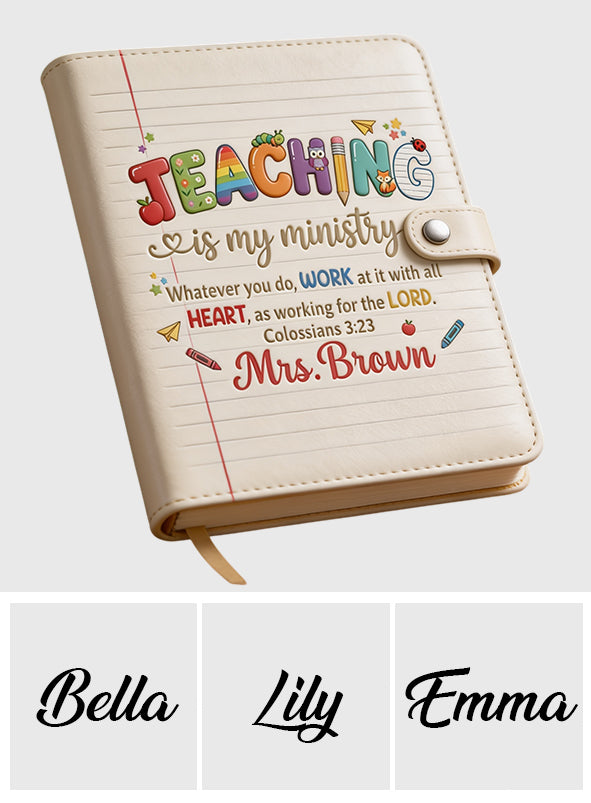 TEACHING
is my ministry
Whatever you do, WORK at it with all
HEART, as working for the LORD.
Colossians 3:23
Mrs.Brown
Bella
Lily
Emma